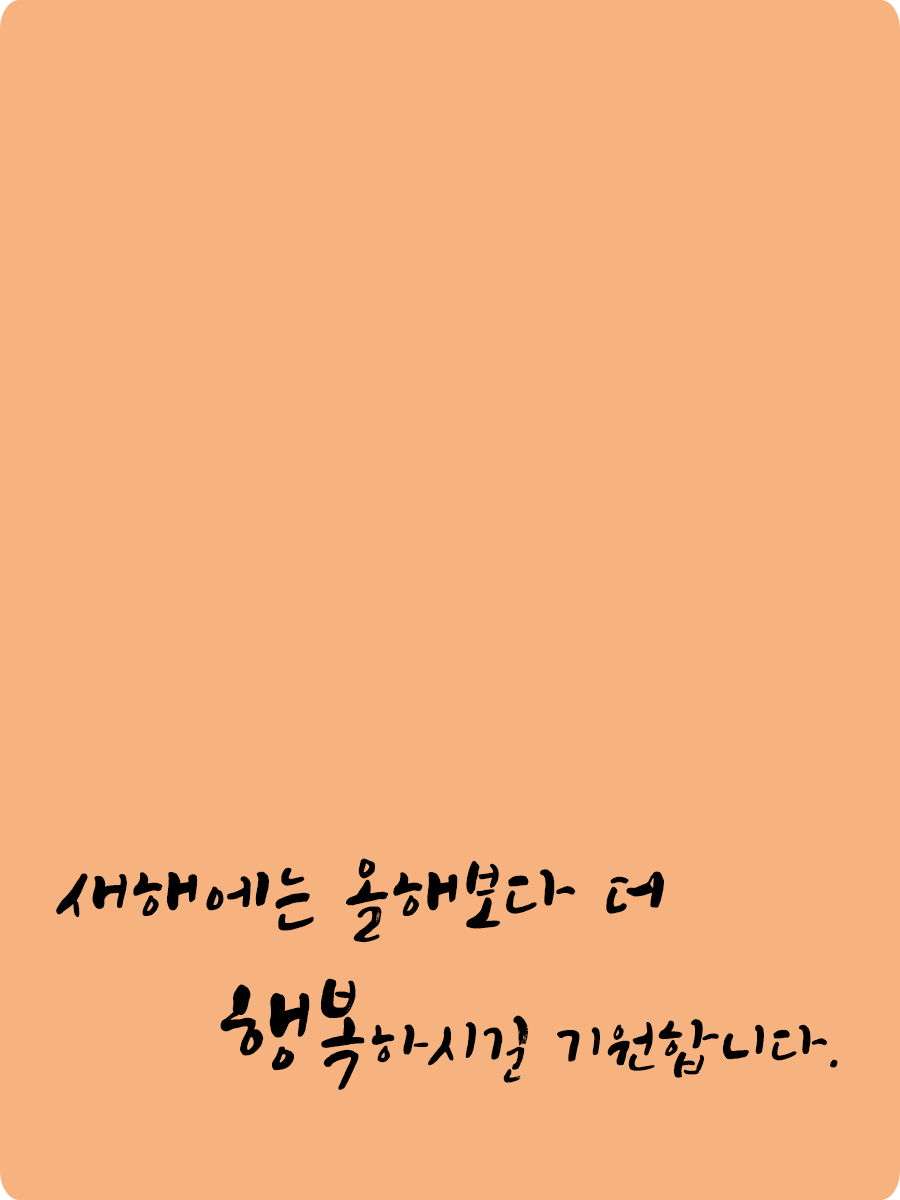 새해에는 올해보다 더
행복하시길 기원합니다.